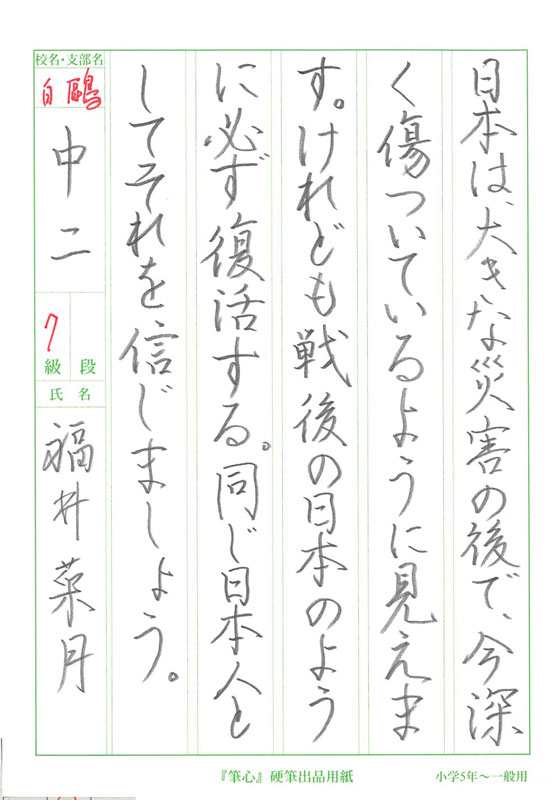 日本は、大きな災害の後で、今深
く傷ついているように見えま
す。けれども戦後の日本のよう
に必ず復活する。同じ日本人と
してそれを信じましょう。
校名・支部名
白鷗
中二
7
級 段
氏 名
福井菜月
『筆心』硬筆出品用紙
小学5年～一般用